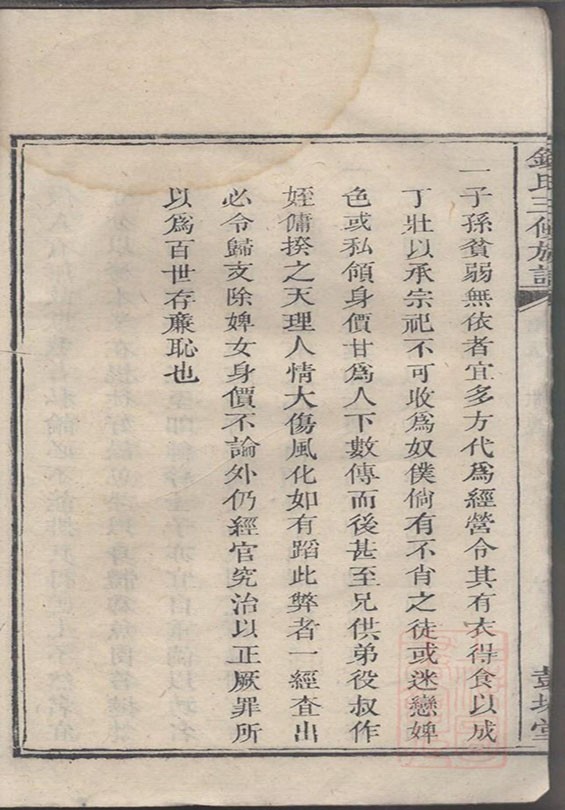 鍾氏三修族譜
彭城堂
一子孫貧弱無依者宜多方代爲經營令其有衣得食以成
丁壯以承宗祀不可收爲奴僕倘有不肖之徒或迷戀婢
色或私領身價甘爲人下數傳而後甚至兄供弟役叔作
姪傭揆之天理人情大傷風化如有蹈此弊者一經査出
必令歸支除婢女身價不論外仍經官究治以正厥罪所
以爲百世存廉恥也